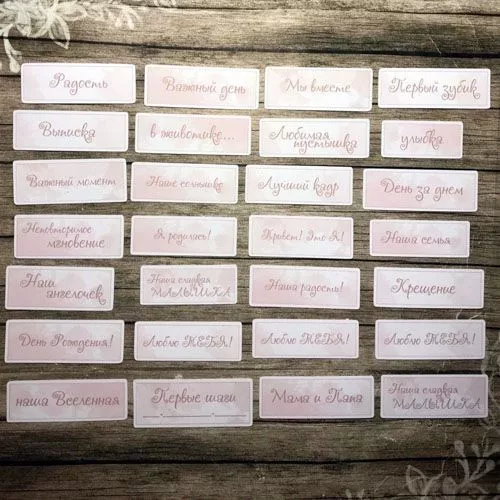 Радость
Важный день
Мы вместе
Первый зубик
Выписка
в животике...
Любимая
пустышка
улыбка
Важный момент
Наше солнышко
Лучший кадр
День за днем
Неповторимое
мгновение
Я родилась!
Привет! Это Я!
Наша семья
Наш
ангелочек
Наша сладкая
МАЛЫШКА
Наша радость!
Крещение
День Рождения!
Люблю ТЕБЯ!
Люблю ТЕБЯ!
Люблю ТЕБЯ!
наша Вселенная
Первые шаги
Мама и Папа
Наша сладкая
МАЛЫШКА